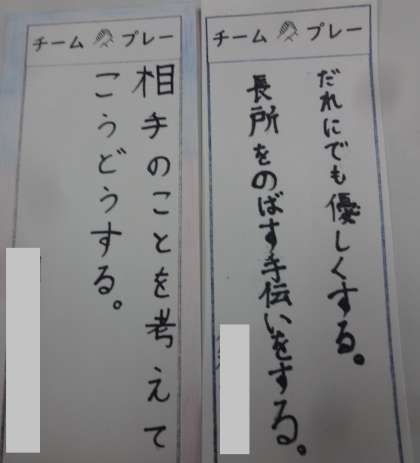 チーム プレー
相手のことを考えて
こうどうする。
チーム プレー
だれにでも優しくする。
長所をのばす手伝いをする。